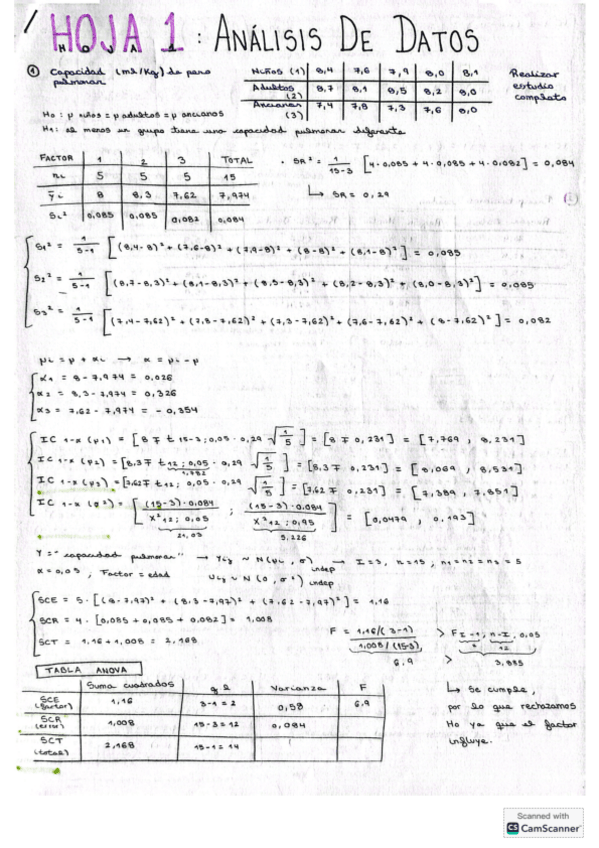 HOJA 1 : ANÁLISIS DE DATOS
① Capacidad (ml/Kg) de paro pulmonar
Niños (1) | 8,4 | 7,6 | 7,9 | 8,0 | 8,1
Adultos (2) | 8,7 | 8,1 | 8,5 | 8,2 | 8,0
Ancianos (3) | 7,4 | 7,8 | 7,3 | 7,6 | 8,0
Realizar estudio completo
H0: μ niños = μ adultos = μ ancianos
H1: al menos un grupo tiene una capacidad pulmonar diferente
FACTOR 1 2 3 TOTAL
ni 5 5 5 15
ȳi 8 8,3 7,62 7,974
Si² 0,085 0,085 0,082 0,084
· SR² = 1/(15-3) [4·0,085 + 4·0,085 + 4·0,082] = 0,084
↳ SR = 0,29
S1² = 1/(5-1) [(8,4-8)² + (7,6-8)² + (7,9-8)² + (8-8)² + (8,1-8)²] = 0,085
S2² = 1/(5-1) [(8,7-8,3)² + (8,1-8,3)² + (8,5-8,3)² + (8,2-8,3)² + (8,0-8,3)²] = 0,085
S3² = 1/(5-1) [(7,4-7,62)² + (7,8-7,62)² + (7,3-7,62)² + (7,6-7,62)² + (8-7,62)²] = 0,082
μi = μ + αi → α = μi - μ
α1 = 8 - 7,974 = 0,026
α2 = 8,3 - 7,974 = 0,326
α3 = 7,62 - 7,974 = - 0,354
IC 1-α (μ1) = [8 ∓ t 15-3; 0,05 · 0,29 √(1/5)] = [8 ∓ 0,231] = [7,769 , 8,231]
IC 1-α (μ2) = [8,3 ∓ t12; 0,05 · 0,29 √(1/5)] = [8,3 ∓ 0,231] = [8,069 , 8,531]
1,782
IC 1-α (μ3) = [7,62 ∓ t12; 0,05 · 0,29 √(1/5)] = [7,62 ∓ 0,231] = [7,389 , 7,851]
IC 1-α (σ²) = [(15-3)·0,084 / χ²12; 0,05 ; (15-3)·0,084 / χ²12; 0,95] = [0,0479 , 0,193]
21,03 5,226
Y = "capacidad pulmonar" → Yij ~ N(μi, σ) indep → I=3, n=15, n1=n2=n3=5
α=0,05 , Factor = edad Uij ~ N(0, σ²) indep
SCE = 5 · [(8-7,97)² + (8,3-7,97)² + (7,62-7,97)²] = 1,16
SCR = 4 · [0,085 + 0,085 + 0,082] = 1,008
SCT = 1,16 + 1,008 = 2,168
F = 1,16/(3-1) / 1,008/(15-3) > F I-1, n-I, 0,05
2 12
6,9 > 3,885
TABLA ANOVA
Suma cuadrados gl Varianza F
SCE (factor) 1,16 3-1=2 0,58 6,9
SCR (error) 1,008 15-3=12 0,084
SCT (total) 2,168 15-1=14
↳ Se cumple,
por lo que rechazamos
H0 ya que el factor
influye.
Scanned with
CS CamScanner